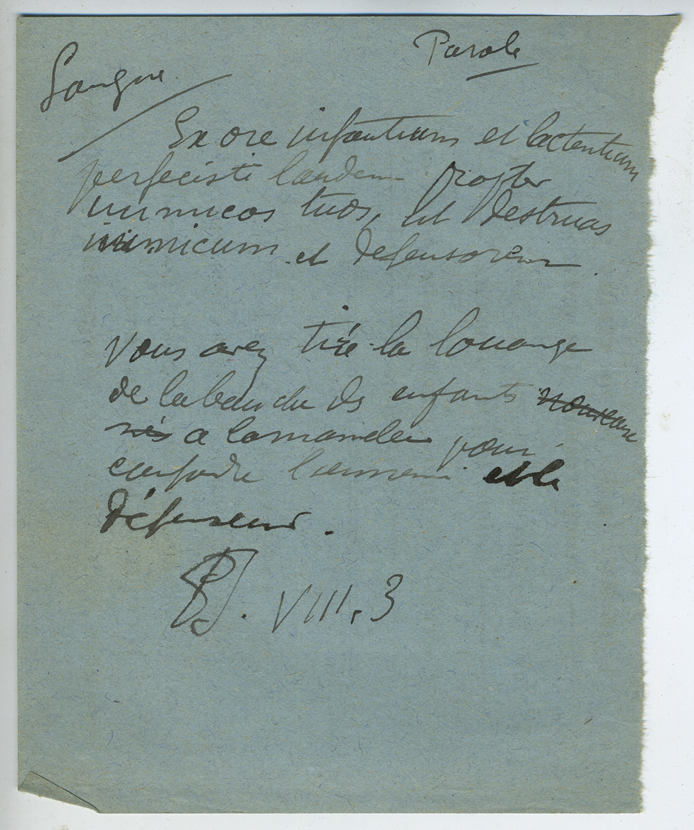 Parole
Langue
Ex ore infantium et lactentium
perfecisti laudem propter
inimicos tuos, ut destruas
inimicum et defensorem.
Vous avez tiré la louange
de la bouche des enfants nouveaux
nés à la mamelle pour
confondre l'ennemi et le
défenseur.
Ps. VIII, 3